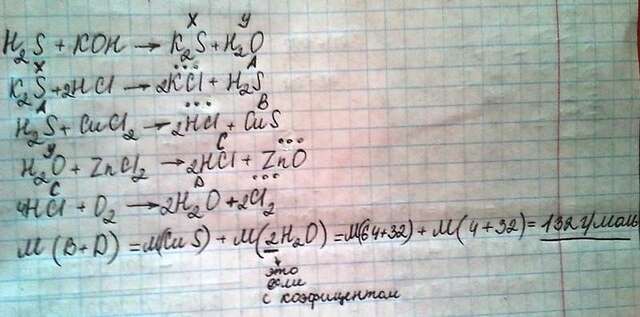 X Y
H₂S + KOH → K₂S + H₂O
X A
K₂S + 2HCl → 2KCl + H₂S
A B
H₂S + CuCl₂ → 2HCl + CuS
Y C
H₂O + ZnCl₂ → 2HCl + ZnO
C D
4HCl + O₂ → 2H₂O + 2Cl₂
M (B+D) = M(CuS) + M(2H₂O) = M(64+32) + M(4+32) = 132 г/моль
это
если
с коэфицентом